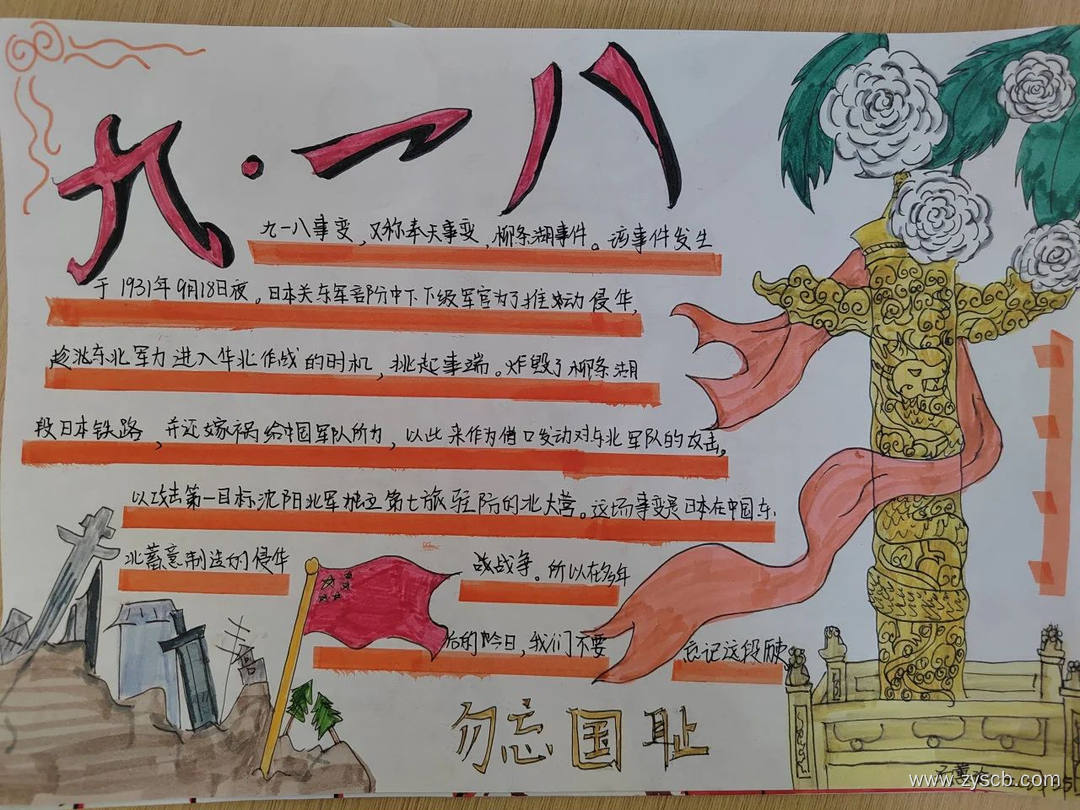 九·一八
九一八事变,又称奉天事变,柳条湖事件。该事件发生
于1931年9月18日夜。日本关东军部分中下下级军官为了推动侵华,
趁沈东北军力进入华北作战的时机,挑起事端。炸毁了柳条湖
段日本铁路,并还嫁祸给中国军队所为,以此来作为借口发动对东北军队的攻击。
以攻击第一目标沈阳北军独立第七旅驻防的北大营。这场事变是日本在中国东
北蓄意制造的侵华 战战争。所以在多年
后的今日,我们不要 忘记这段历史
勿忘国耻
www.zyscb.com